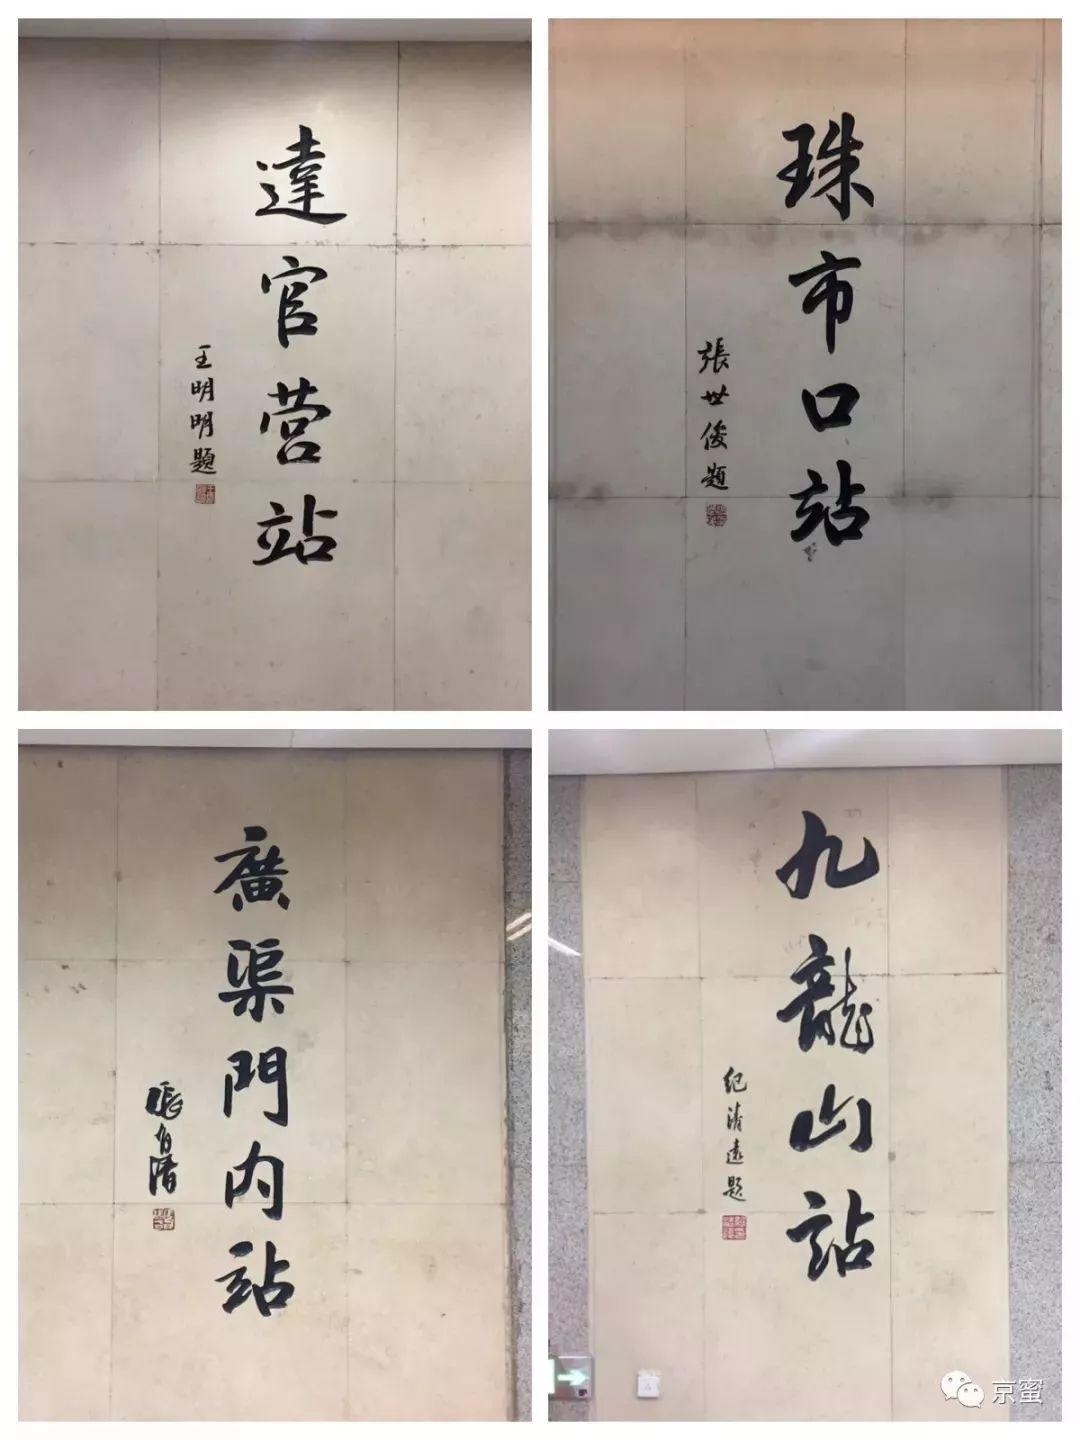 達官营站
王明明題
珠市口站
張世俊題
廣渠門内站
九龍山站
纪清遠题
京蜜